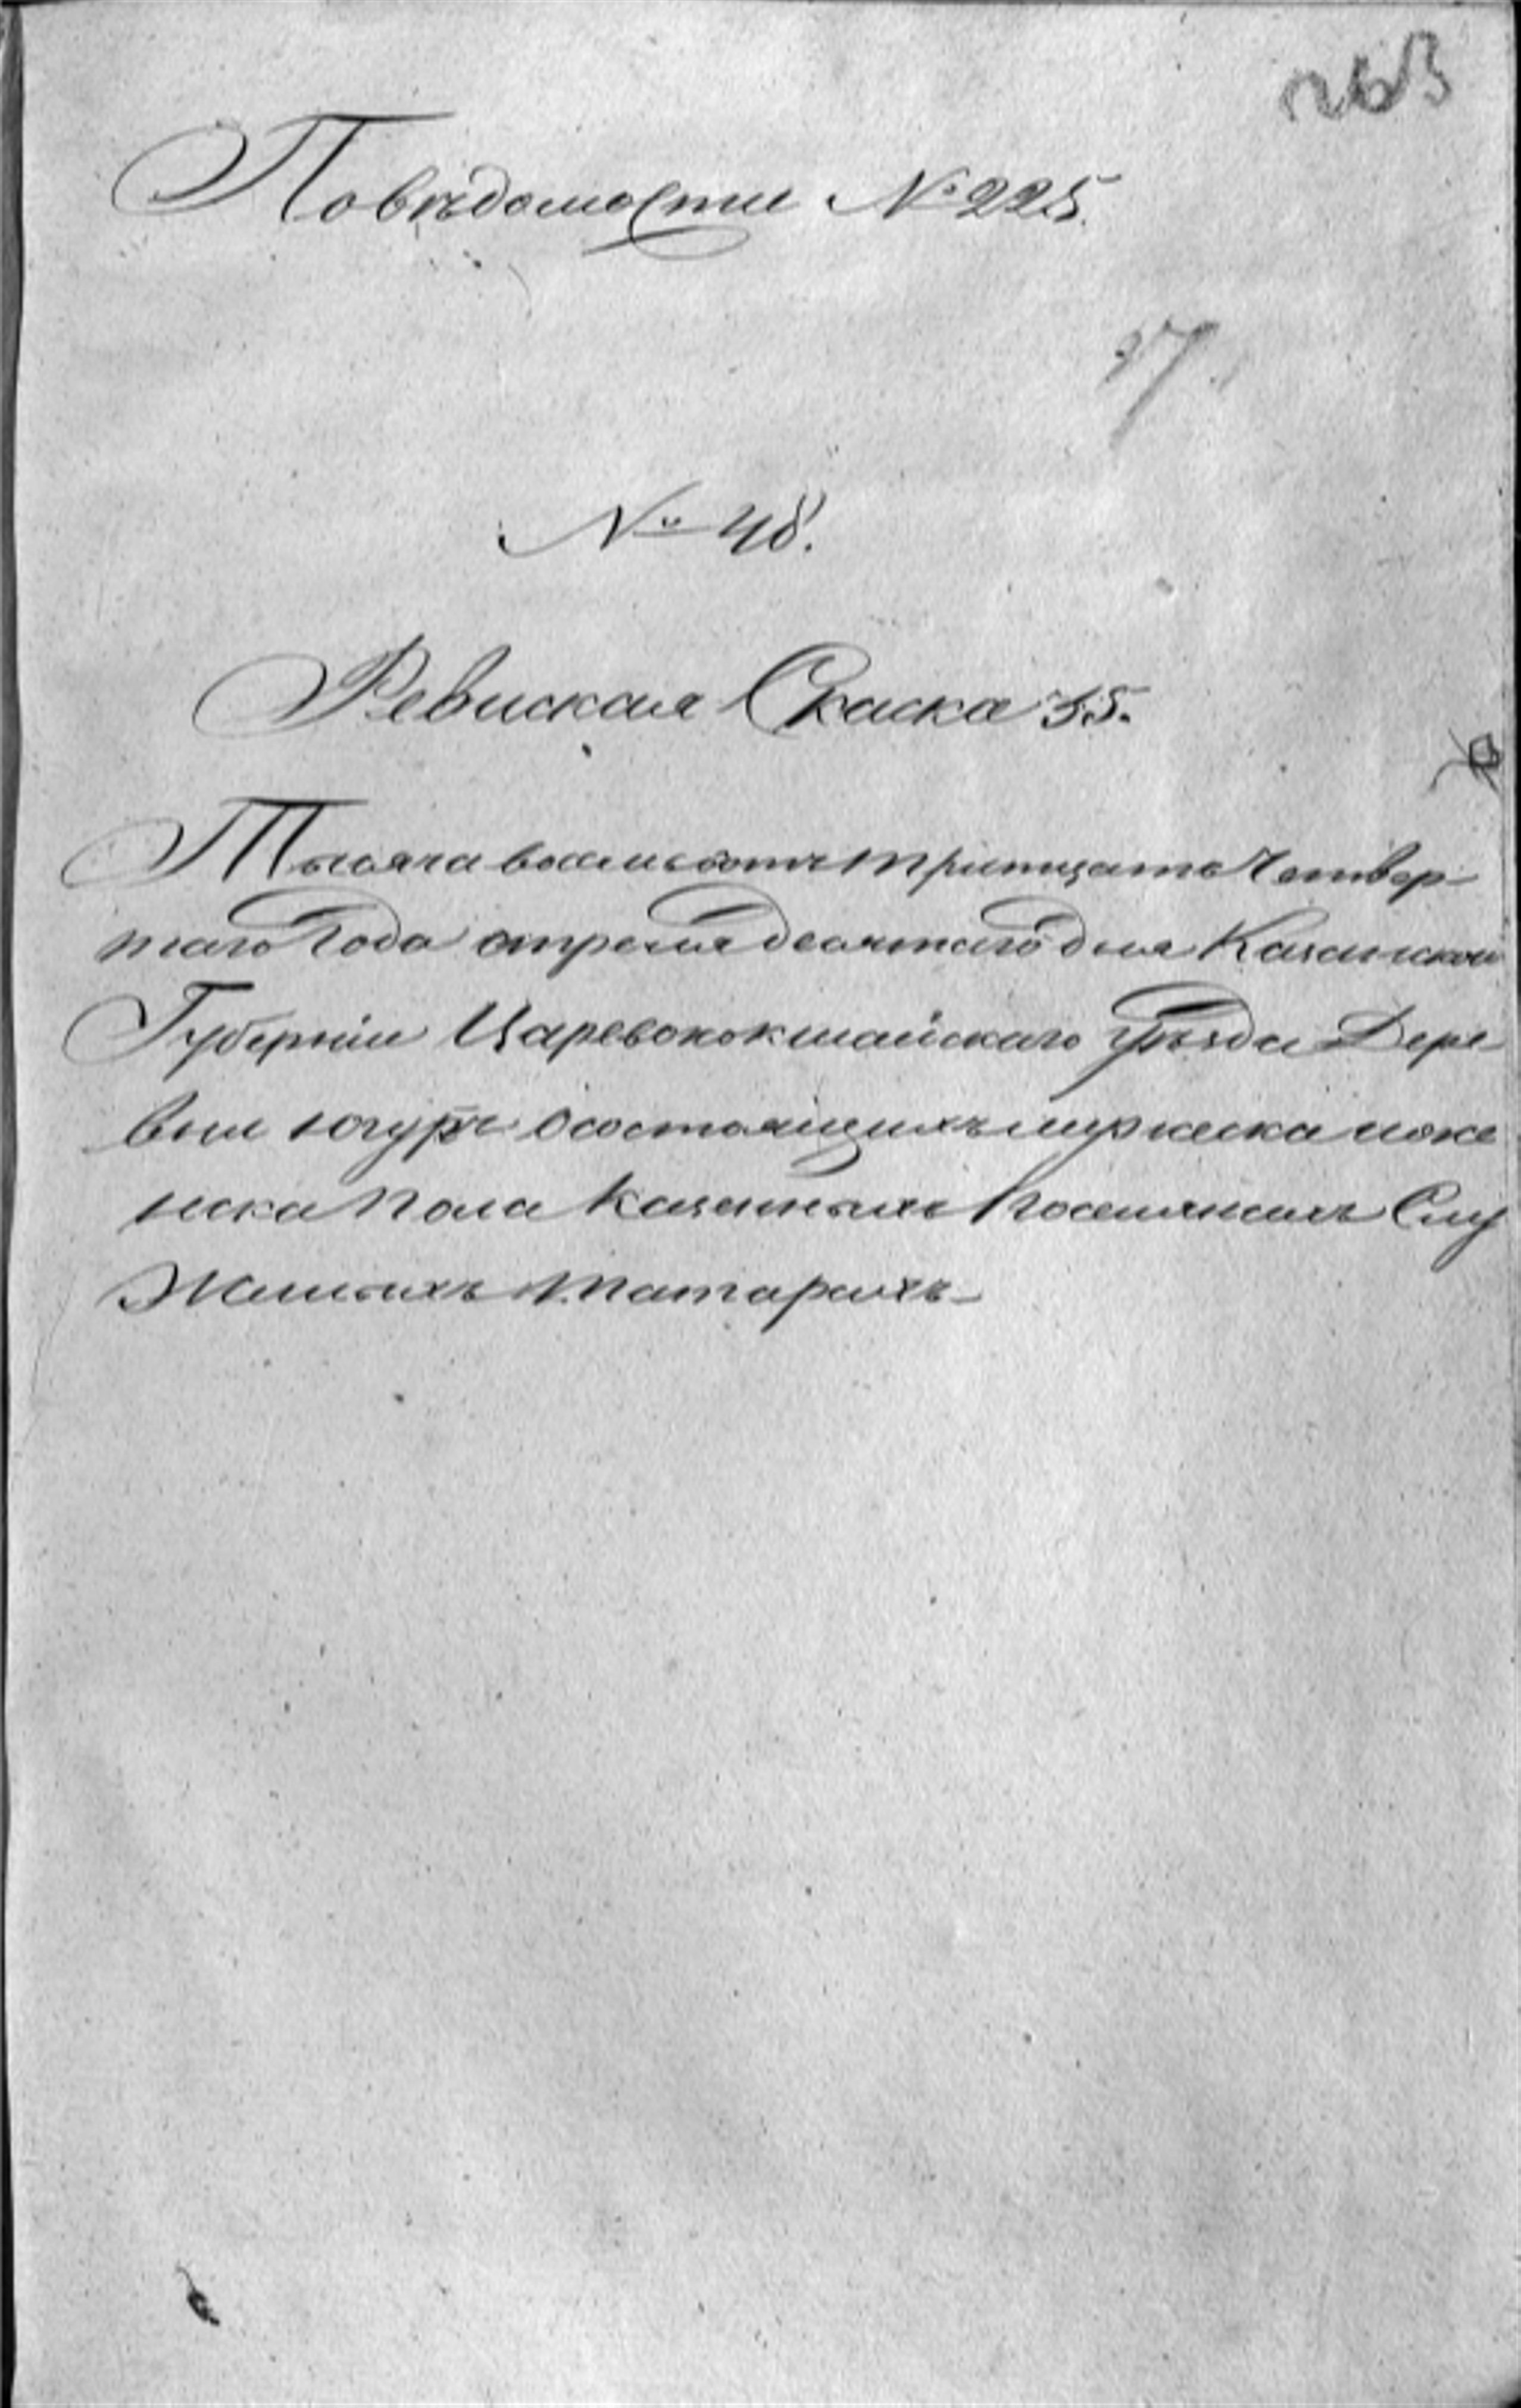 263
По вѣдомости № 225.
37.
№ 48.
Ревиская Скаска 35.
Тысяча восемьсотъ тритцать четвер-
таго Года апреля десятаго дня Казанской
Губерніи Царевококшайскаго уѣзда Дере-
вни югуръ о состоящихъ мужеска и же
неска пола казенныхъ поселянахъ Слу
жилыхъ татарахъ